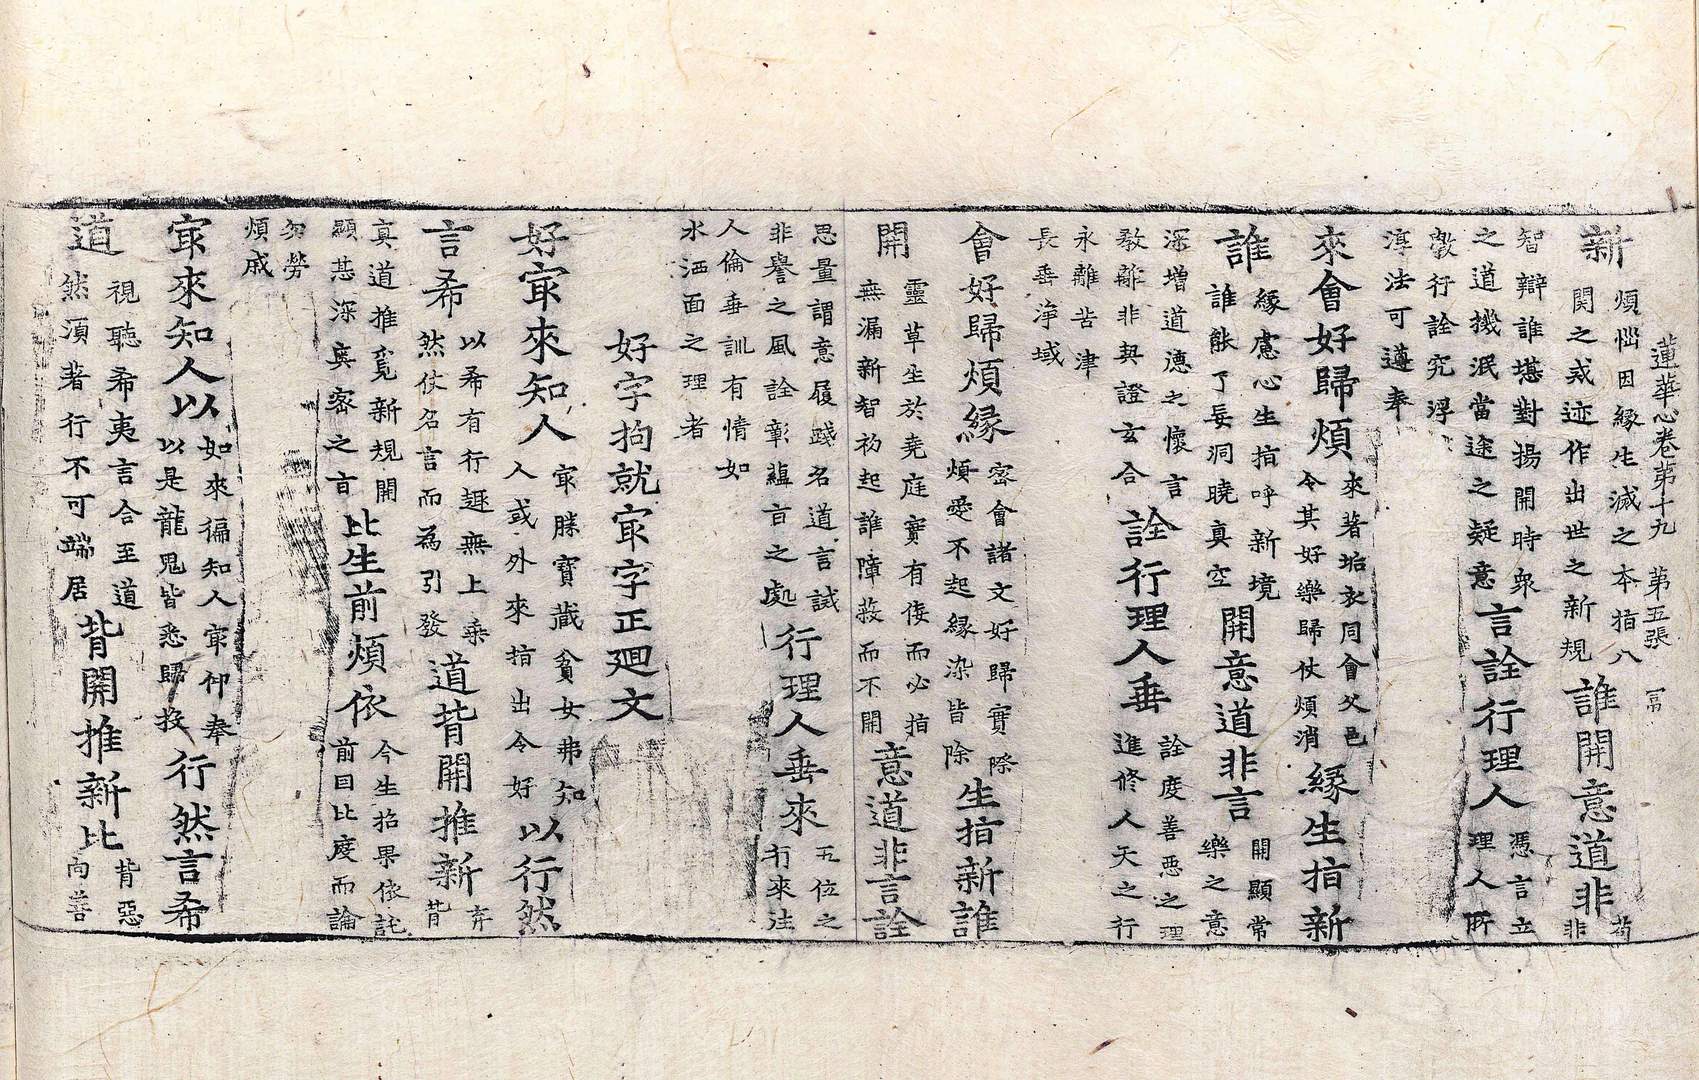 蓮華心卷第十九　第五張　冨
新煩惱因緣生滅之本指八関之戒迹作出世之新規誰開意道非苟非
智辯誰堪對揚開時衆之道機泯當途之疑意言詮行理人憑言立理人所
敷行詮究浮淳法可遵奉
來會好歸煩來著垢衣同會父邑令其好樂歸仗煩消緣生指新
誰緣慮心生指呼新境誰能了妄洞曉真空開意道非言開顯常樂之意
深增道德之懷言教離非契證玄合詮行理人垂詮度善惡之理進修人天之行
永離苦津長垂淨域
會好歸煩緣密會諸文好歸實際煩愛不起緣染皆除生指新誰
開靈草生於堯庭實有佞而必指無漏新智初起誰障蔽而不開意道非言詮
思量謂意履踐名道言試非譽之風詮彰蘊旨之處行理人垂來五位之行來往
人倫垂訓有情如水洒面之理者
好字拘就㝡字正廻文
好㝡來知人㝡勝寶藏貧女弗知人或外來指出令好以行然
言希以希有行趣無上乘然仗名言而為引發道背開推新弃背
真道推覓新規開顯甚深寘密之旨比生前煩依今生招果依託前因比度而論
勿勞煩戚
㝡來知人以如來徧知人㝡仰奉以是龍鬼皆悉歸投行然言希
道視聽希夷言合至道然須著行不可端居背開推新比背惡向善